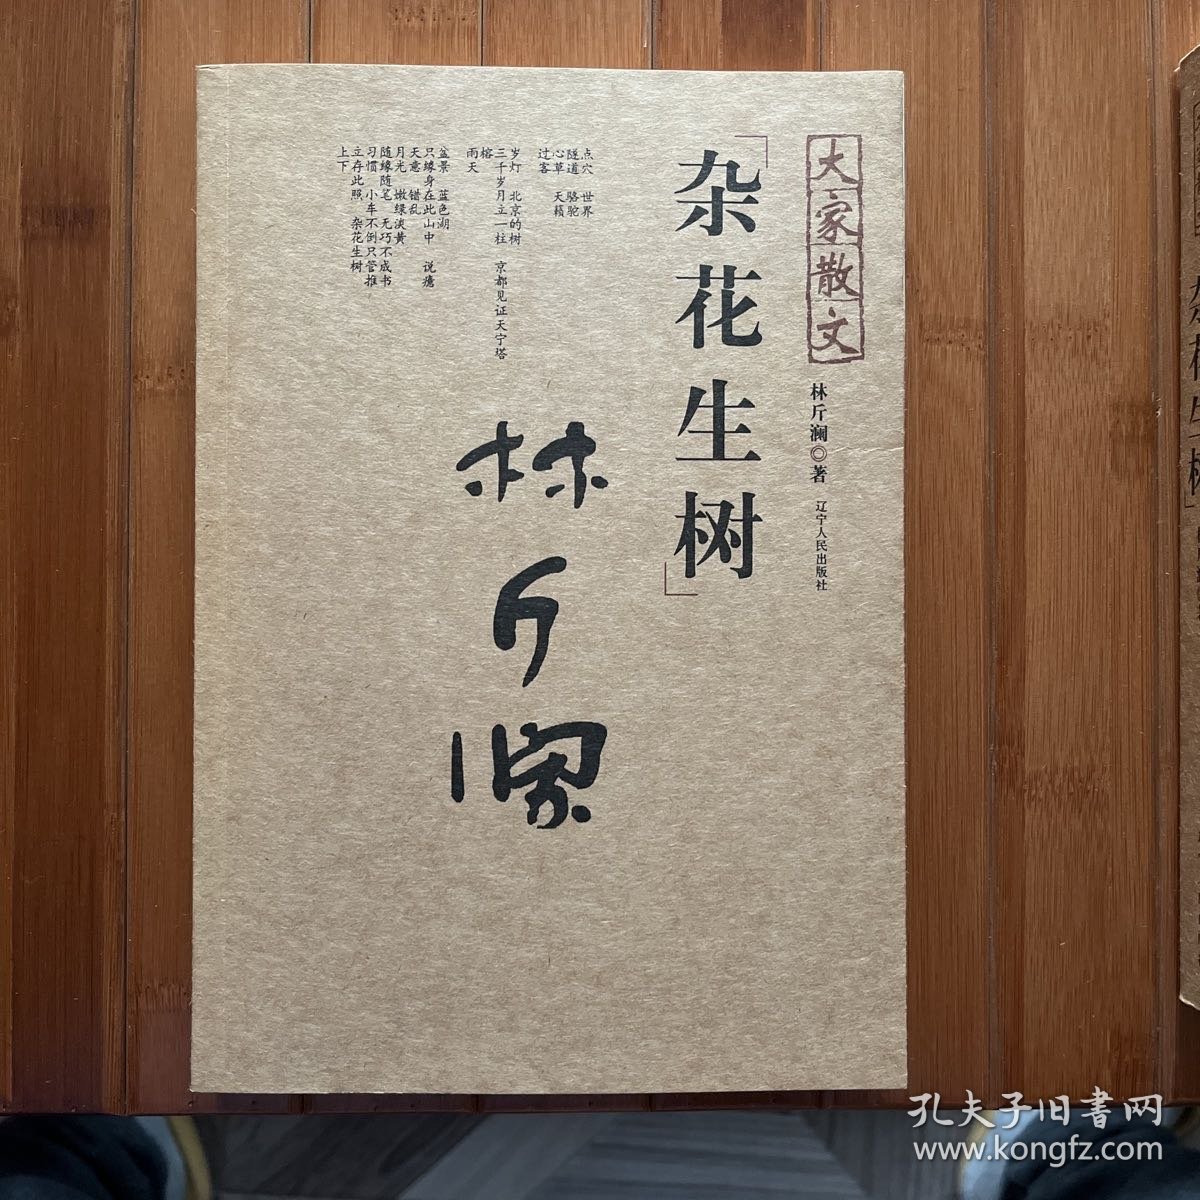 大家散文
林斤澜◎著 辽宁人民出版社
「杂花生树」
点穴 世界
隧道 骆驼
心草 天籁
过客
岁灯 北京的树
三千岁月立一柱 京都见证天宁塔
榕
雨天
盆景 蓝色湖
只缘身在此山中 说瘾
天意 错乱
月光 嫩绿淡黄
随缘随笔 无巧不成书
习惯 小车不倒只管推
立存此照 杂花生树
上下
林斤澜
杂花生树」
孔夫子旧书网
www.kongfz.com